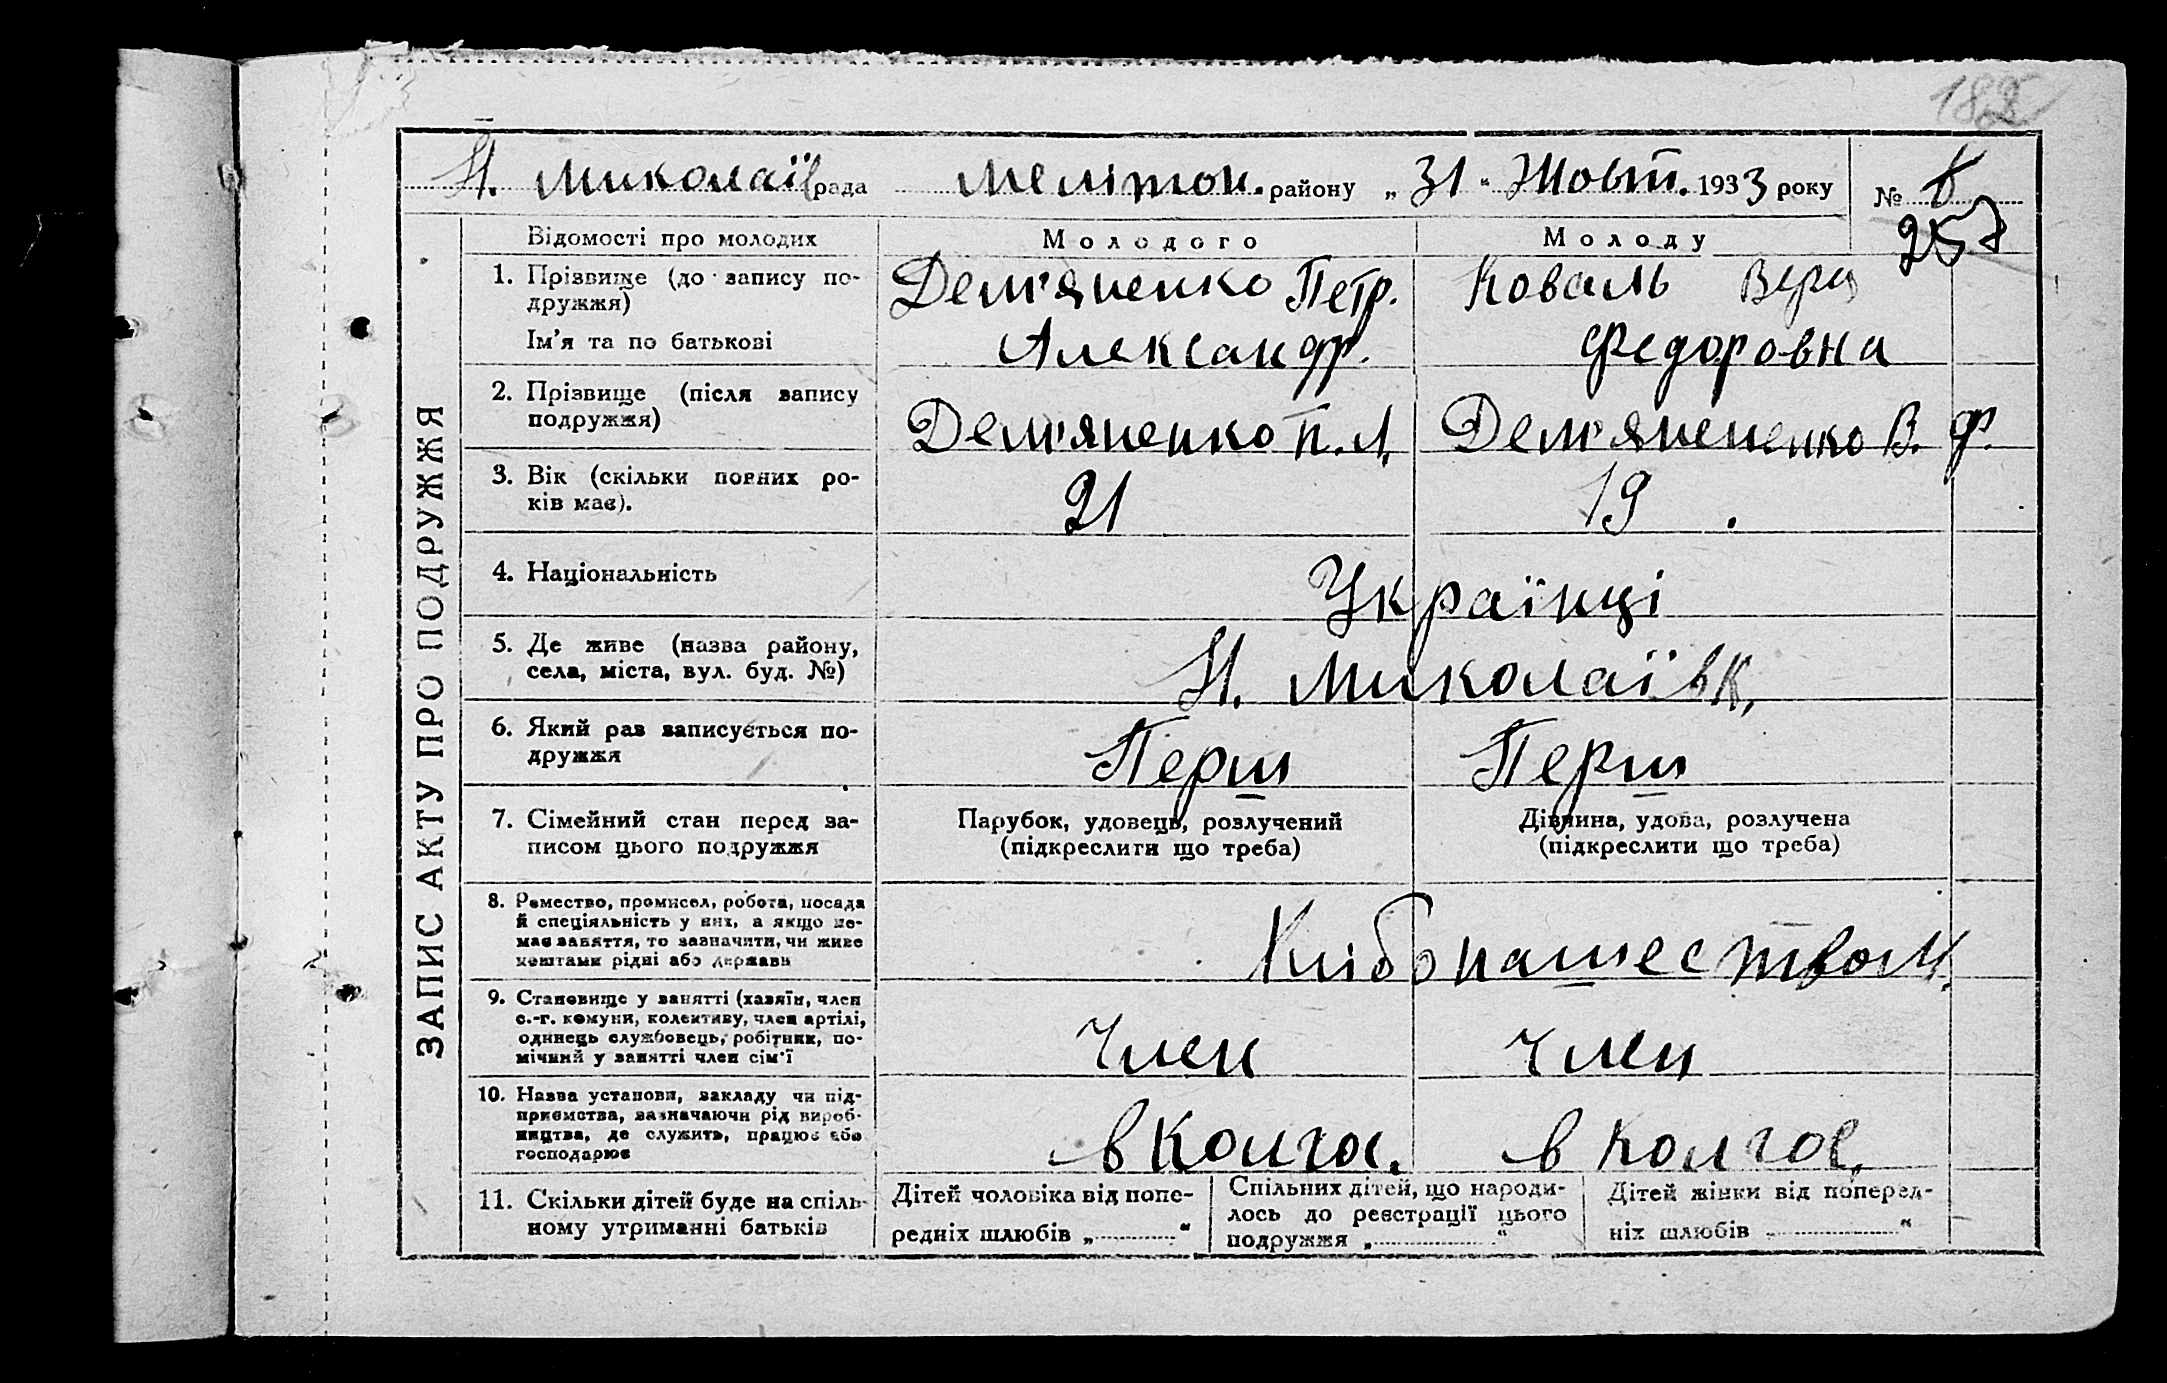 182
Н. Миколаїв рада Мелітоп. району „31" Жовт. 1933 року №
257
ЗАПИС АКТУ ПРО ПОДРУЖЖЯ
Відомості про молодих
Молодого
Молоду
1. Прізвище (до запису по-
дружжя)
Ім'я та по батькові
Дем'яненко Петр.
Александр.
Коваль Вера
Федоровна
2. Прізвище (після запису
подружжя)
Дем'яненко П. А.
Дем'янененко В. Ф.
3. Вік (скільки повних ро-
ків має).
21
19.
4. Національність
Українці
5. Де живе (назва району,
села, міста, вул. буд. №)
Н. Миколаївк,
6. Який раз записується по-
дружжя
Перш
Перш
7. Сімейний стан перед за-
писом цього подружжя
Парубок, удовець, розлучений
(підкреслити що треба)
Дівчина, удова, розлучена
(підкреслити що треба)
8. Ремество, промисел, робота, посада
й спеціяльність у них, а якщо не-
має заняття, то зазначити, чи живе
коштами рідні або держави
Хлібопашеством.
9. Становище у занятті (хазяїн, член
с.-г. комуни, колективу, член артілі,
одинець службовець, робітник, по-
мічний у занятті член сім'ї
Член
Член
10. Назва установи, закладу чи під-
приємства, зазначаючи рід вироб-
ництва, де служить, працює або
господарює
в Колгос.
в Колгос.
11. Скільки дітей буде на спіль-
ному утриманні батьків
Дітей чоловіка від попе-
редніх шлюбів „ "
Спільних дітей, що народи-
лось до реєстрації цього
подружжя „ "
Дітей жінки від поперед-
ніх шлюбів „ "